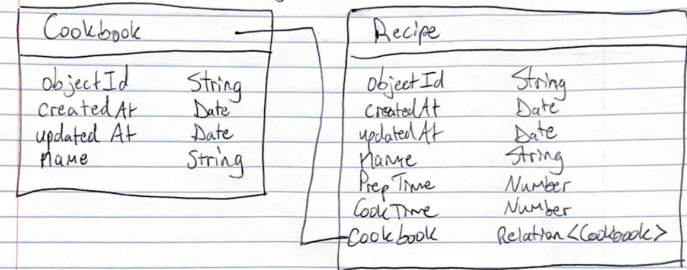 Cookbook
objectId String
createdAt Date
updated At Date
name String
Recipe
objectId String
createdAt Date
updatedAt Date
name String
PrepTime Number
CookTime Number
Cookbook Relation<Cookbook>